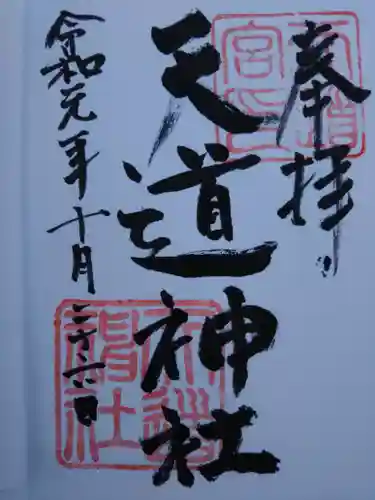 奉拝
天道神社
令和元年十月二十六日